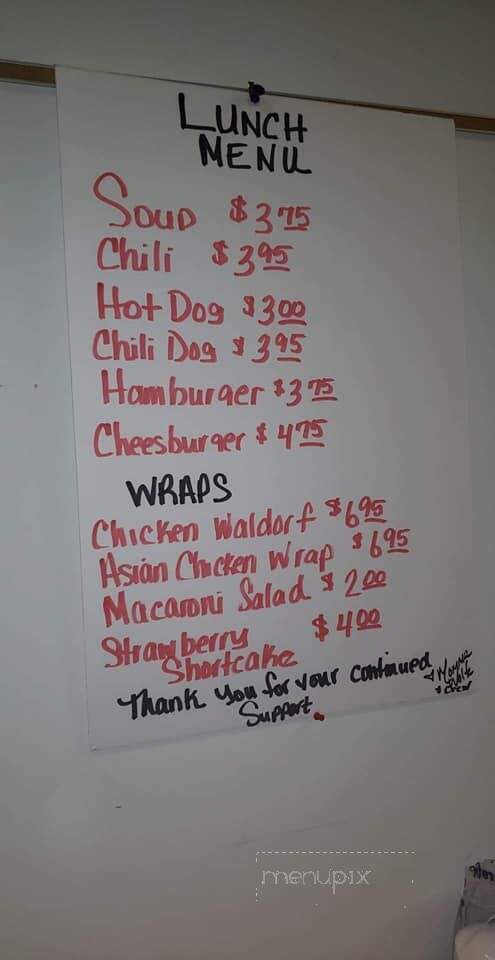 LUNCH
MENU
Soup $3.75
Chili $3.95
Hot Dog $3.00
Chili Dog $3.95
Hamburger $3.75
Cheesburger $4.75
WRAPS
Chicken Waldorf $6.95
Asian Chicken Wrap $6.95
Macaroni Salad $2.00
Strawberry $4.00
Shortcake
Thank you for your continued
Support.
menupix